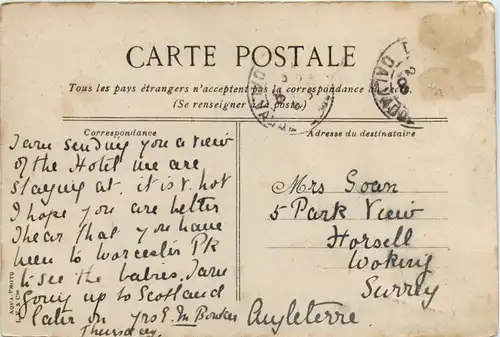 CARTE POSTALE
Tous les pays étrangers n'acceptent pas la correspondance au recto
(Se renseigner à la poste)
Correspondance
I am sending you a view
of the Hotel we are
staying at. it is v. hot
I hope you are better
I hear that you have
been to Worcester Pk
to see the babies, I am
going up to Scotland
later on yrs E. M
Thursday.
Adresse du destinataire
Mrs Goan
5 Park View
Horsell
Woking
Surrey
Angleterre.
AQUA-PHOTO
CALVADOS